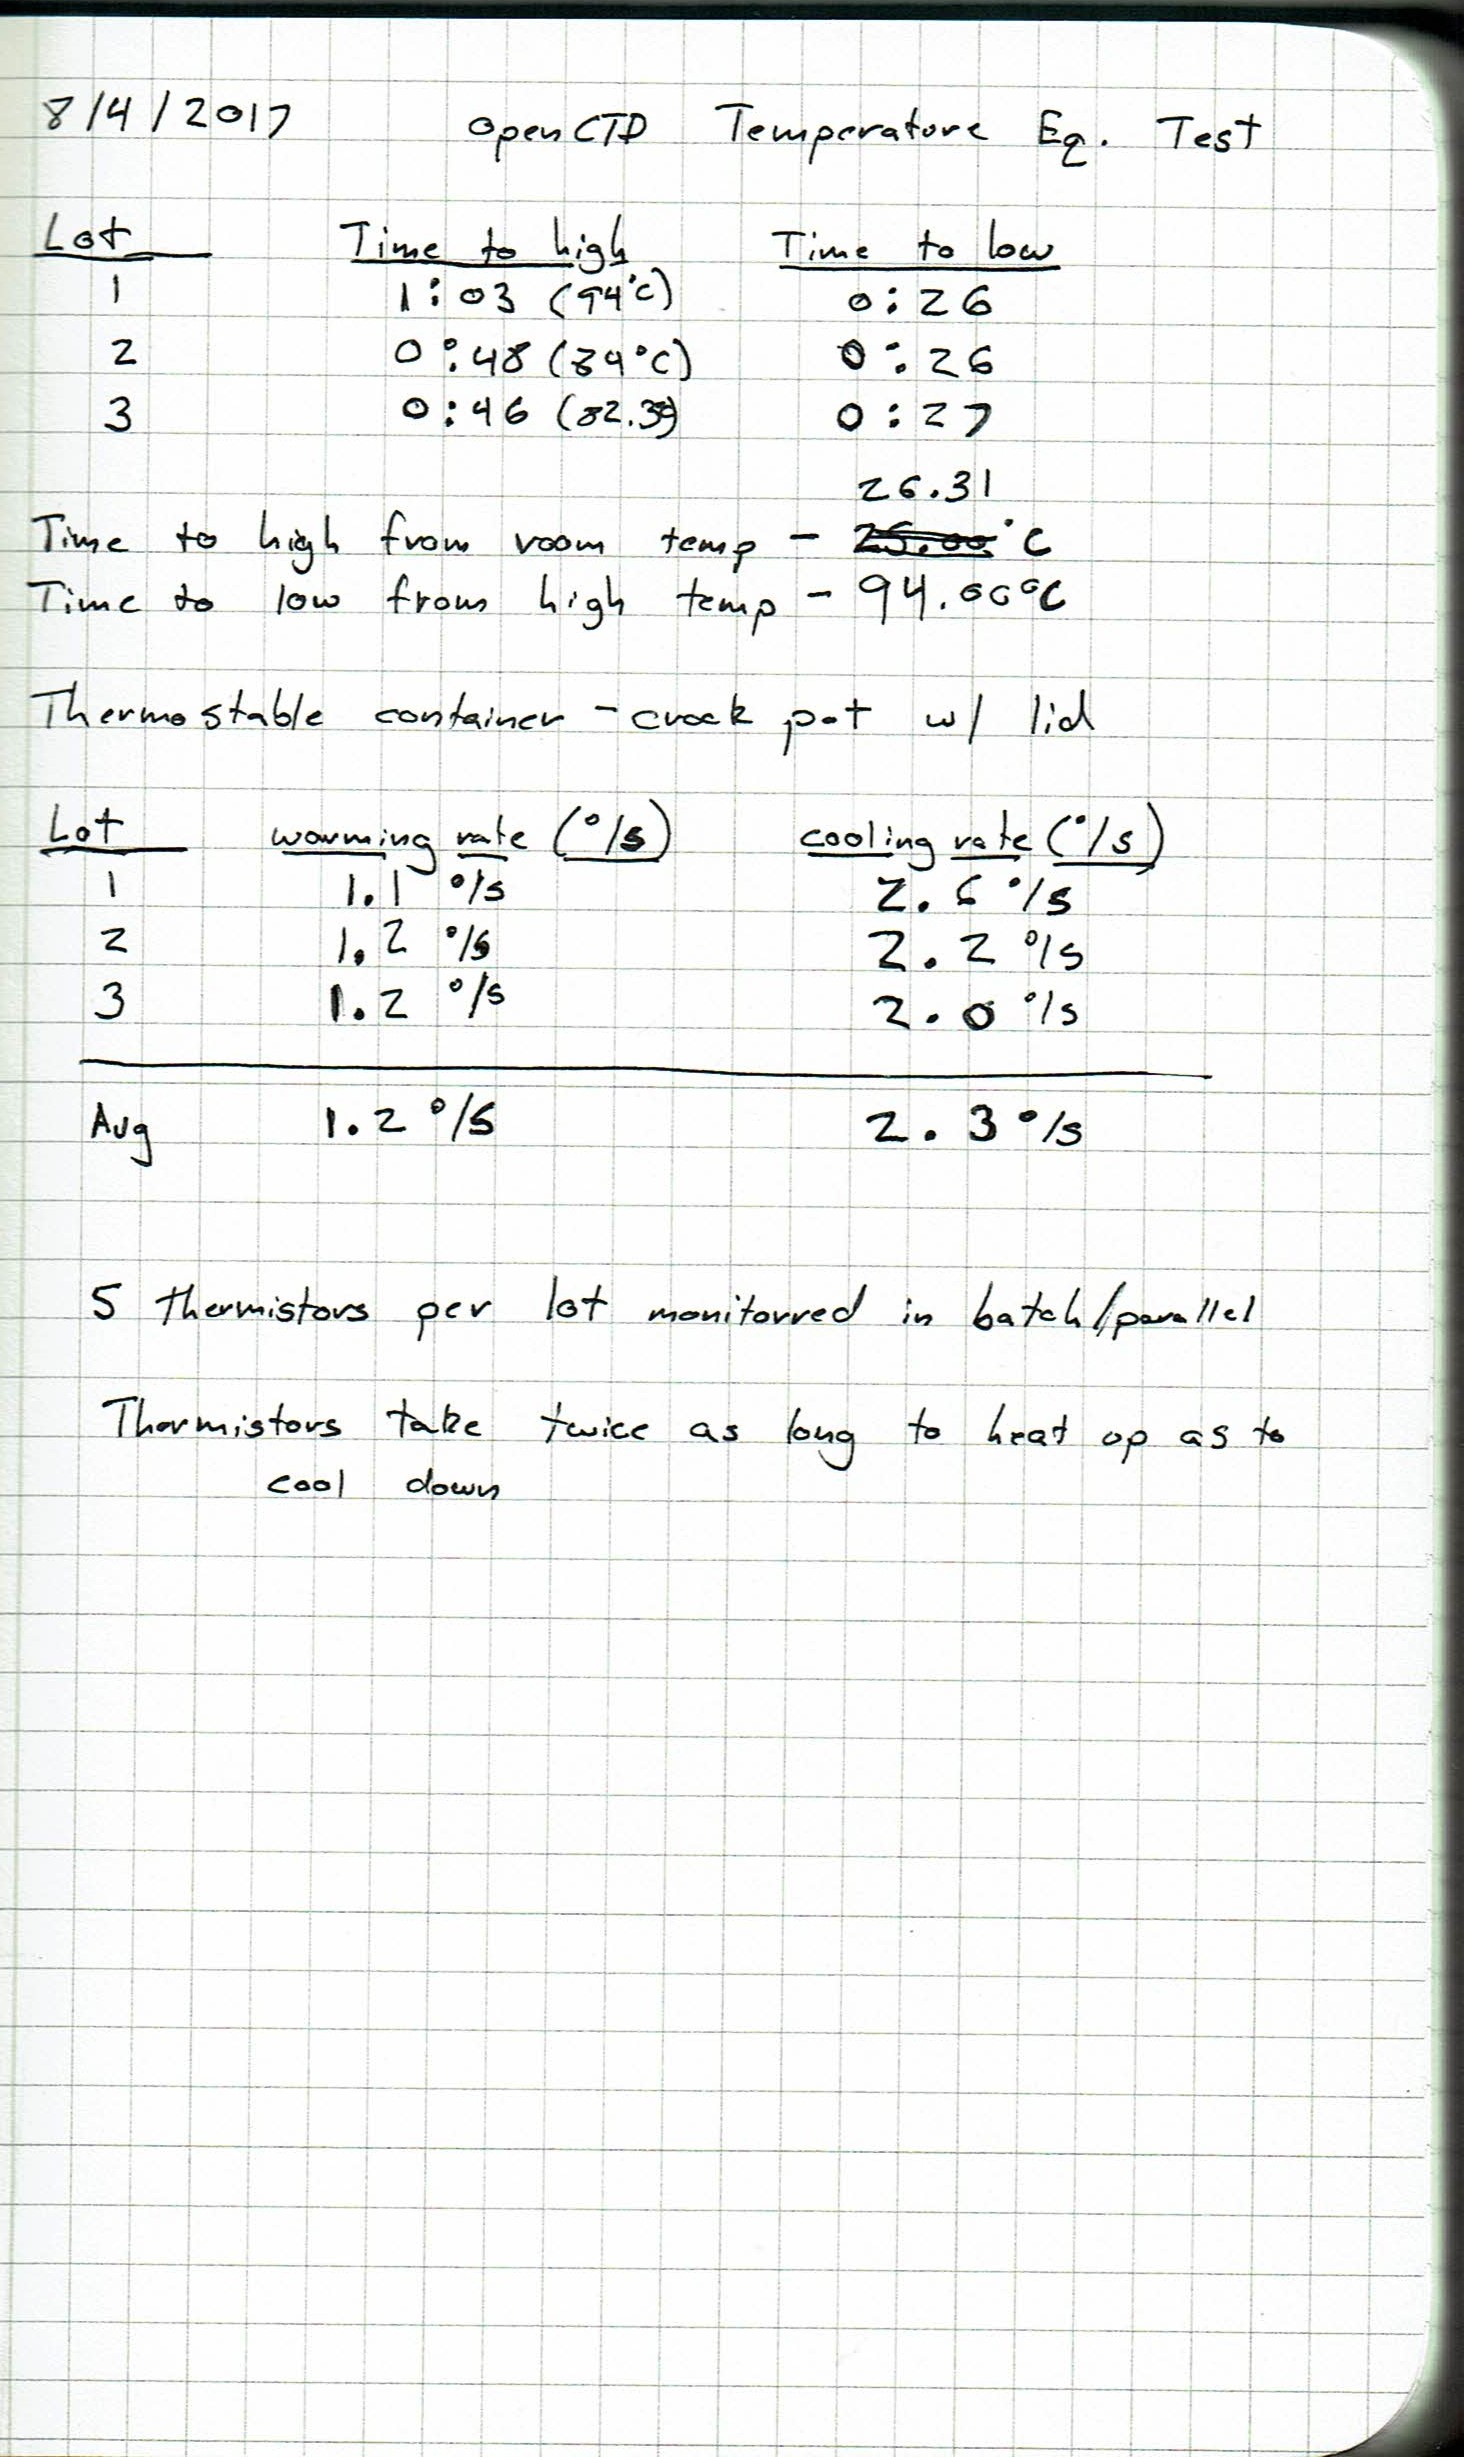 8/4/2017 OpenCTD Temperature Eq. Test
Lot Time to high Time to low
1 1:03 (94°C) 0:26
2 0:48 (84°C) 0:26
3 0:46 (82.39) 0:27
26.31
Time to high from room temp - 25.00 °C
Time to low from high temp - 94.00°C
Thermostable container - crock pot w/ lid
Lot warming rate (°/s) cooling rate (°/s)
1 1.1 °/s 2.6 °/s
2 1.2 °/s 2.2 °/s
3 1.2 °/s 2.0 °/s
Avg 1.2 °/s 2.3 °/s
5 thermistors per lot monitorred in batch/parallel
Thermistors take twice as long to heat up as to
cool down